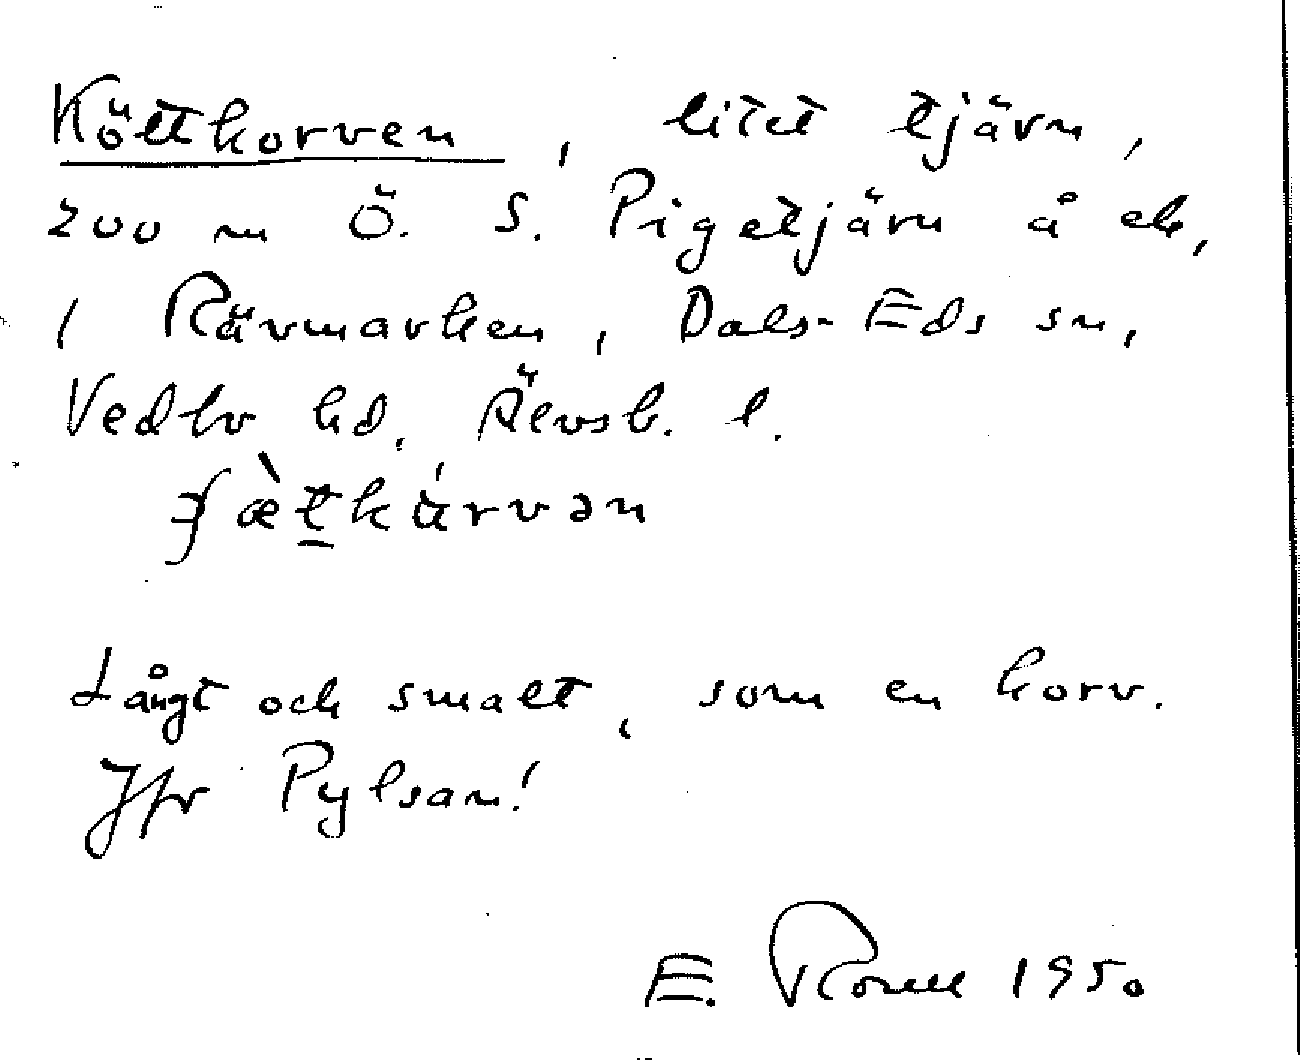 Köttkorven, litet tjärn,
200 m Ö. S. Pigetjärn å ek,
i Rävmarken, Dals-Eds sn,
Vedbo hd, Älvsb. l.
Långt och smalt, som en korv.
Jfr Pylsan!
E. 1950